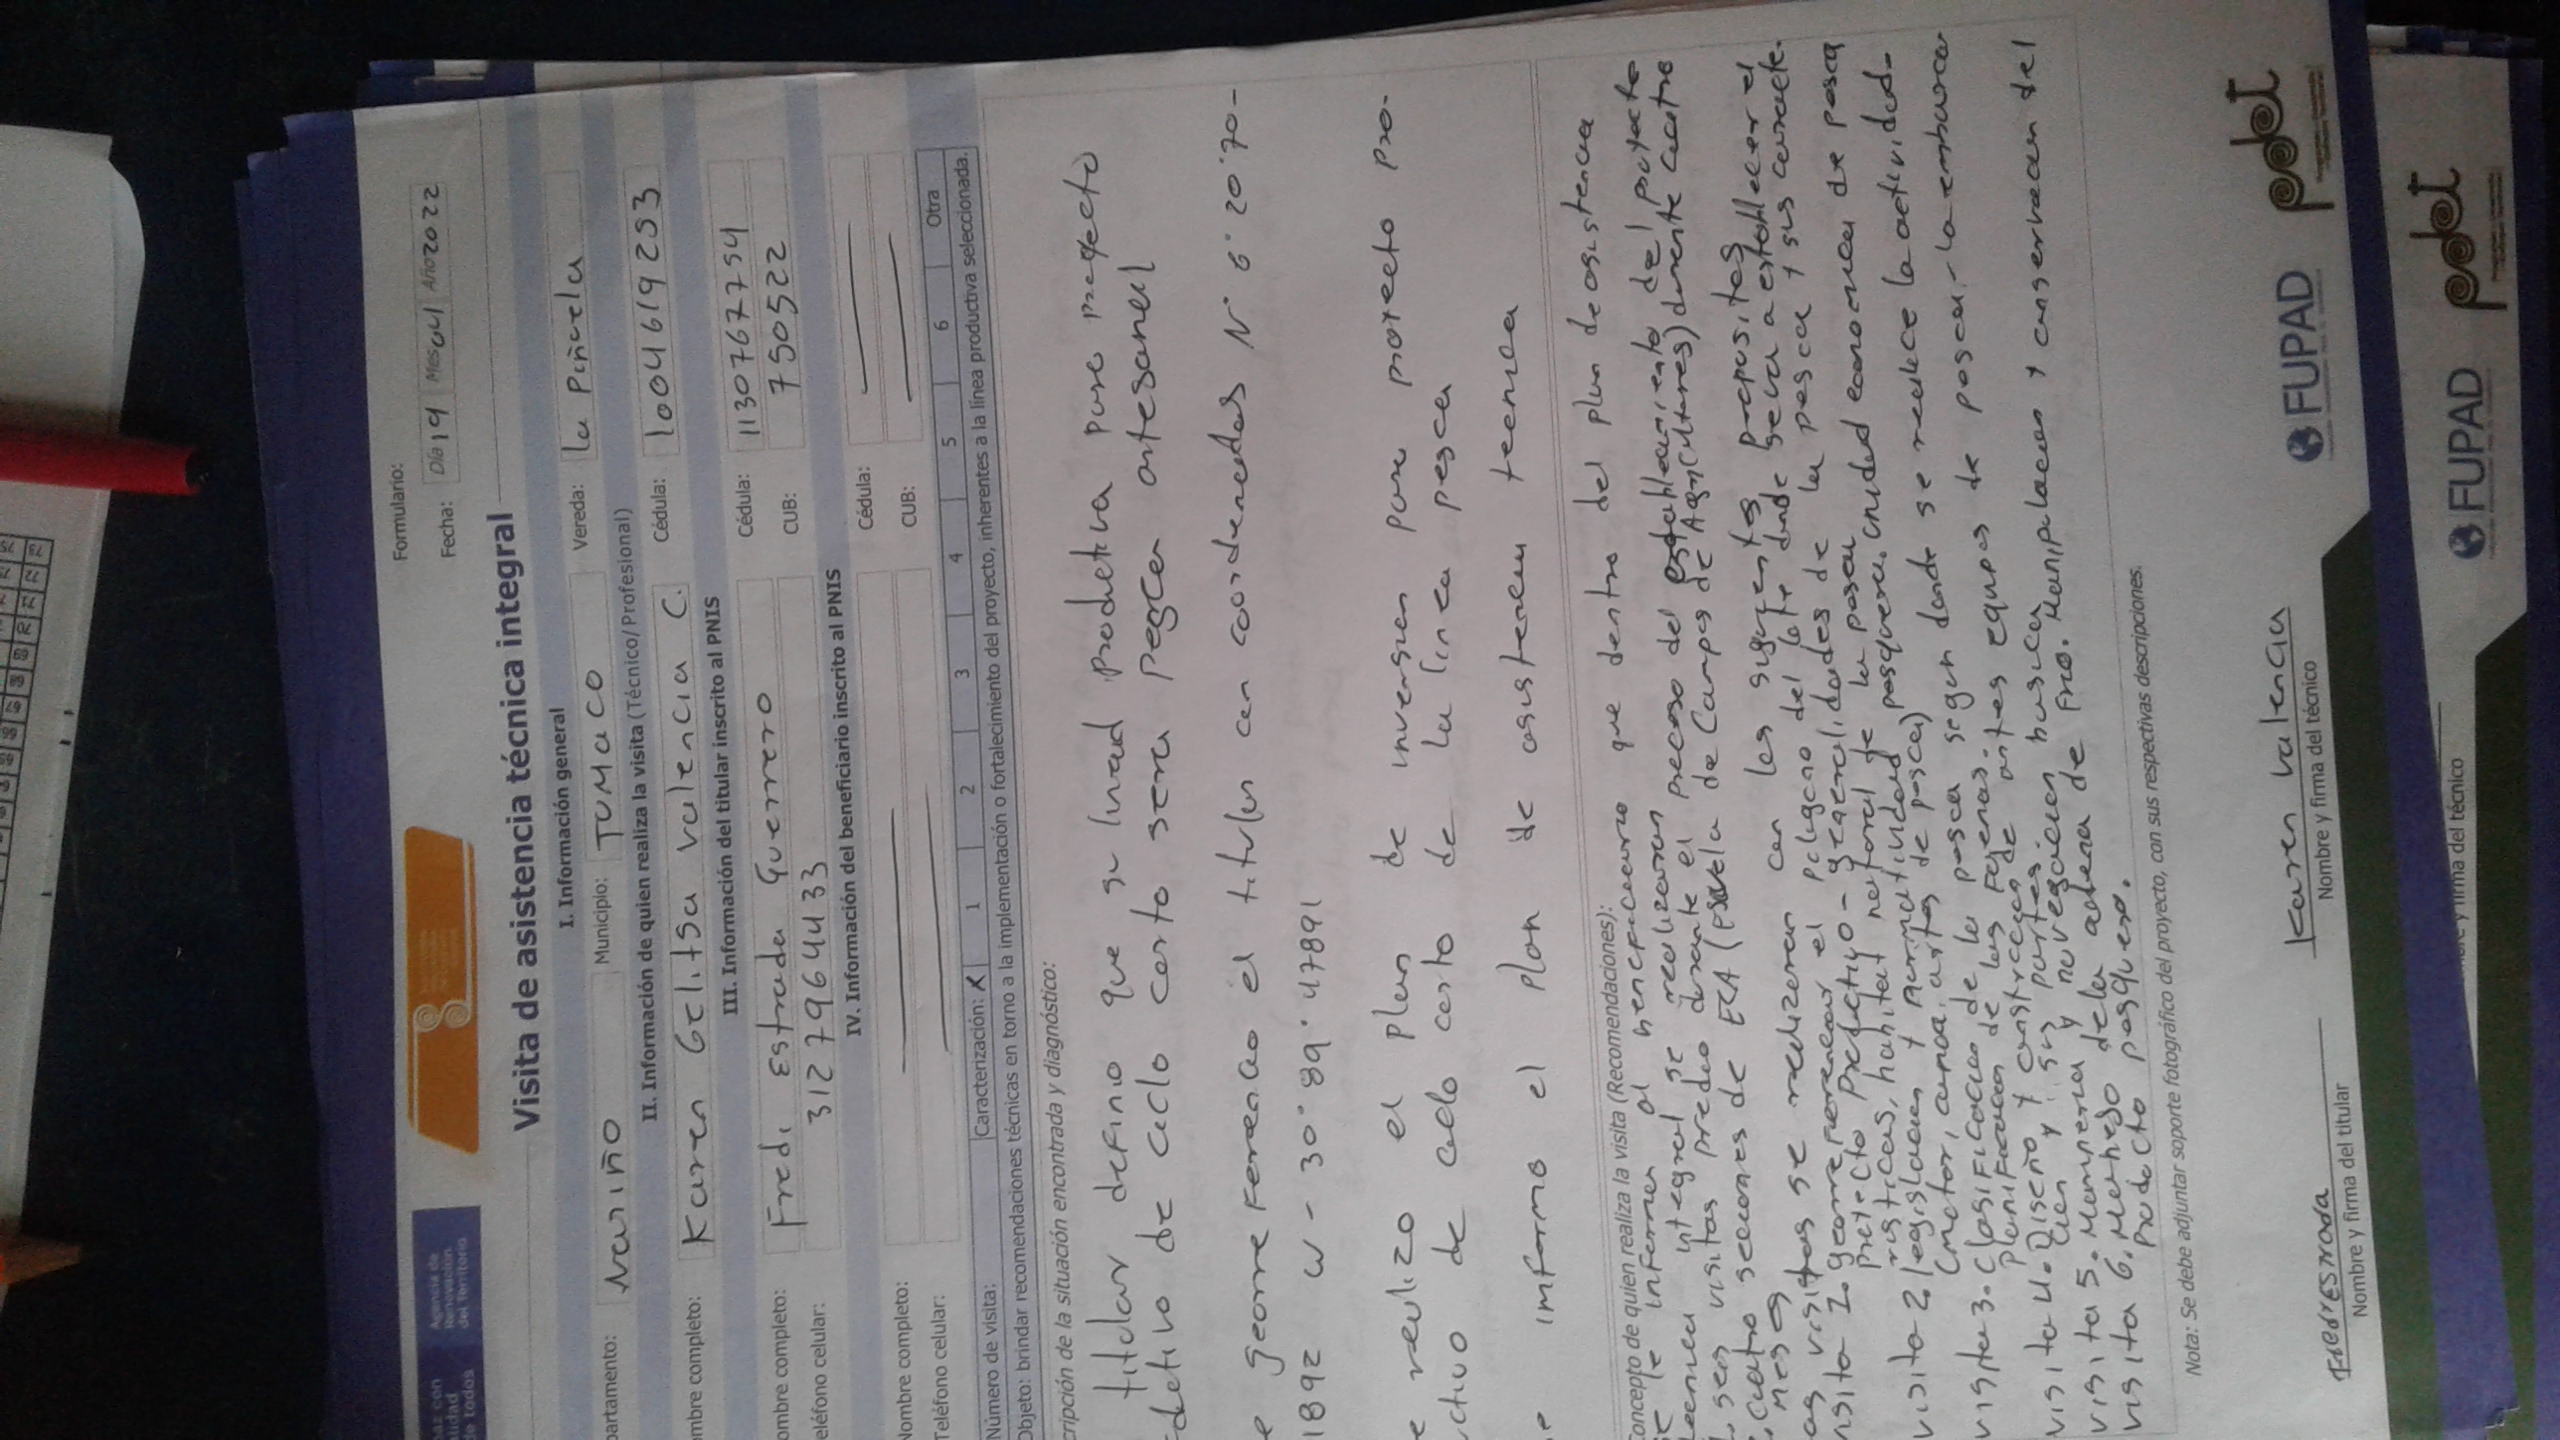 Formulario:
Fecha: Día 19 Mes 04 Año 2022
Paz con
Agencia de
Renovación
del Territorio
Visita de asistencia técnica integral
I. Información general
partamento: Nariño Municipio: TUMACO Vereda: la Piñuela
II. Información de quien realiza la visita (Técnico/Profesional)
ombre completo: Karen Gelitsa valencia C. Cédula: 1004619253
III. Información del titular inscrito al PNIS
ombre completo: Fredi Estrada Guerrero Cédula: 1130767754
eléfono celular: 3127964433 CUB: 750522
IV. Información del beneficiario inscrito al PNIS
Nombre completo: Cédula:
Teléfono celular: CUB:
Número de visita: Caracterización: X 1 2 3 4 5 6 Otra
Objeto: brindar recomendaciones técnicas en torno a la implementación o fortalecimiento del proyecto, inherentes a la línea productiva seleccionada.
cripción de la situación encontrada y diagnóstico:
titular definio que su linead productiva para
ductivo de ciclo corto sera pesca artesanal
e georreferencio el titular con coordenadas N° 6° 20'70-
1892 W - 30° 89' 47891
e realizo el plan de inversion para proyecto pro-
ctivo de ciclo corto de la linea pesca
e informo el plan de asistencia tecnica
Concepto de quien realiza la visita (Recomendaciones):
se le informa al beneficiario que dentro del plan de asistencia
tecnica integral se realizaran proceso del establecimiento del proyecto
seis visitas predio durante el
cuatro secciones de ECA (Escuela de Campos de Agricultores) durante cuatro
meses
as visitas se realizaran con los siguientes propositos
visita 1. georreferenciar el poligono del lote donde se va a establecer el
proyecto productivo - generalidades de la pesca y sus caracte-
risticas, habitat natural de la pesca
visita 2. legislacion y normatividad pesquera, unidad economica de pesca
(motor, canoa, artes de pesca)
visita 3. clasificacion de la pesca segun donde se realice la actividad-
planificacion de las faenas.
visita 4. Diseño y construccion de artes equipos de pescar - la embarca-
cion y sus partes.
visita 5. Memoria y navegacion basica
visita 6. Manejo de la cadena de frio. Manipulacion y conservacion del
producto pesquero.
Nota: Se debe adjuntar soporte fotográfico del proyecto, con sus respectivas descripciones.
Karen valencia
Nombre y firma del titular
Nombre y firma del técnico
FUPAD
pdet
y firma del técnico
FUPAD
pdet